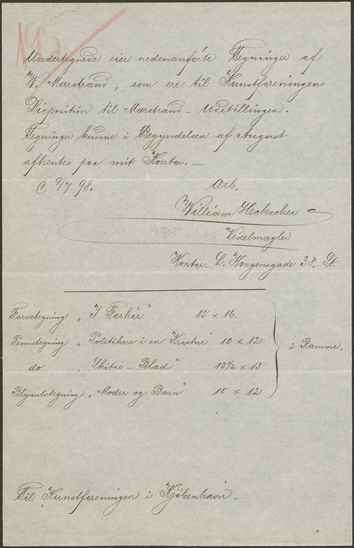 Undertegnede eier nedenanførte Tegninger af
W. Marstrand, som ere til Kunstforeningens
Disposition til Marstrand-Udstillingen.
Tegningerne kunne i Begyndelsen af August
afhentes paa mit Kontor. —
C. 9/7 98.
Arb.
William Heckscher
Vexelmægler
Kontor L. Kongensgade 32 St.
Farvetegning "I Forhør" 12 x 16
Pennetegning "Politikere i en Kjælder" 10 x 12
do "Skitse-Blad" 10½ x 13
i Ramme.
Blyantstegning "Moder og Barn" 15 x 12
Til Kunstforeningen i Kjøbenhavn.